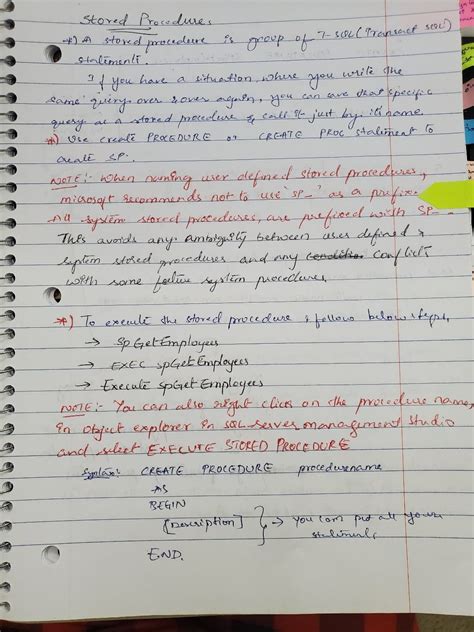 Stored Procedures
*) A stored procedure is group of T-SQL (Transact SQL)
statements.
If you have a situation where you write the
same query over & over again, you can save that specific
query as a stored procedure & call it just by its name.
*) Use create PROCEDURE or CREATE PROC statement to
create SP.
NOTE:- When naming user defined stored procedures,
microsoft recommends not to use 'SP_' as a prefix.
All system stored procedures, are prefixed with SP_.
This avoids any ambiguity between user defined &
system stored procedures and any condition conflicts
with some future system procedures.
*) To execute the stored procedure & follow below steps,
→ spGetEmployees
→ EXEC spGetEmployees
→ Execute spGetEmployees
NOTE:- You can also right click on the procedure name,
in object explorer in SQL server management studio
and select EXECUTE STORED PROCEDURE
Syntax: CREATE PROCEDURE procedurename
AS
BEGIN
[Description] } → You can put all your
statements
END.